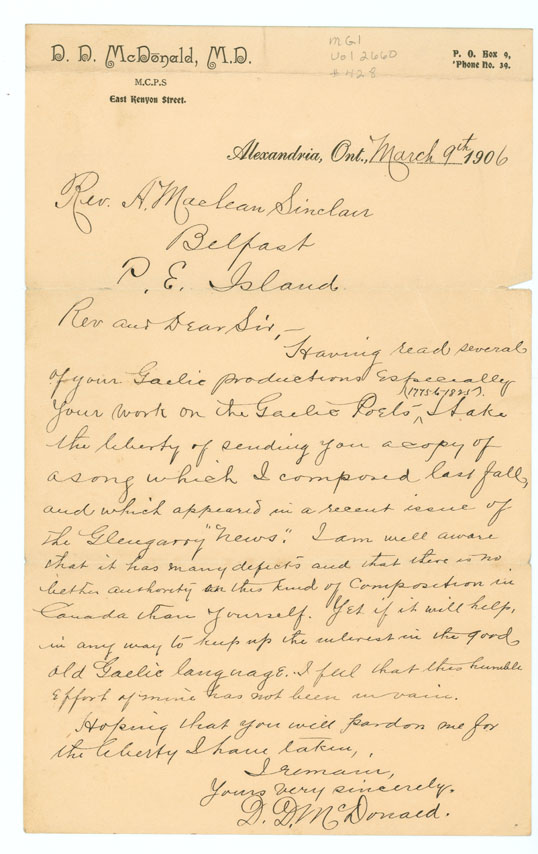 D. D. McDonald, M.D.
M.C.P.S
East Kenyon Street.
MG1
Vol 2660
#428
P. O. Box 9,
'Phone No. 39.
Alexandria, Ont., March 9th 1906
Rev. A. Maclean Sinclair
Belfast
P. E. Island
Rev and Dear Sir,-
Having read several
of your Gaelic productions Especially
(1775 to 1825).
Your work on the Gaelic Poets ^ I take
the liberty of sending you a copy of
a song which I composed last fall,
and which appeared in a recent issue of
the Glengarry "News". I am well aware
that it has many defects and that there is no
better authority on this kind of Composition in
Canada than Yourself. Yet if it will help,
in any way to keep up the interest in the good
old Gaelic language. I feel that this humble
Effort of mine has not been in vain.
Hoping that you will pardon me for
the liberty I have taken,
I remain,
Yours very sincerely.
D. D. McDonald.